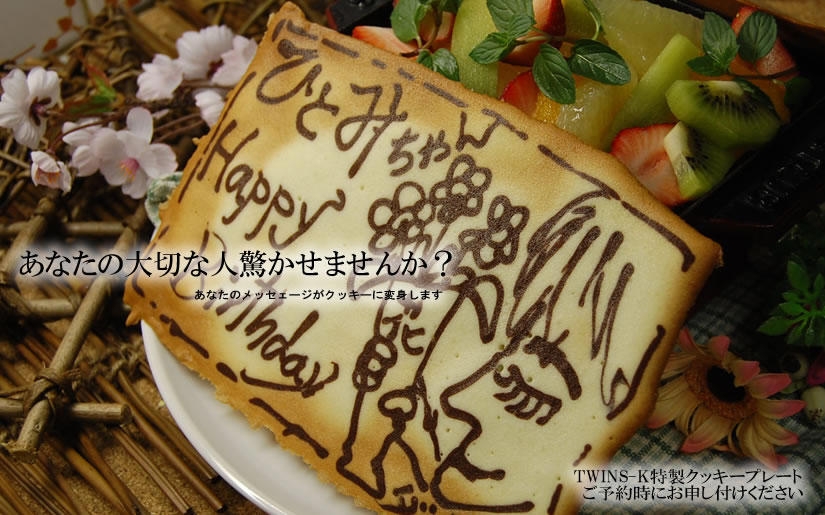 ひとみちゃん
Happy
Birthday
あなたの大切な人驚かせませんか？
あなたのメッセェージがクッキーに変身します
TWINS-K特製クッキープレート
ご予約時にお申し付けください